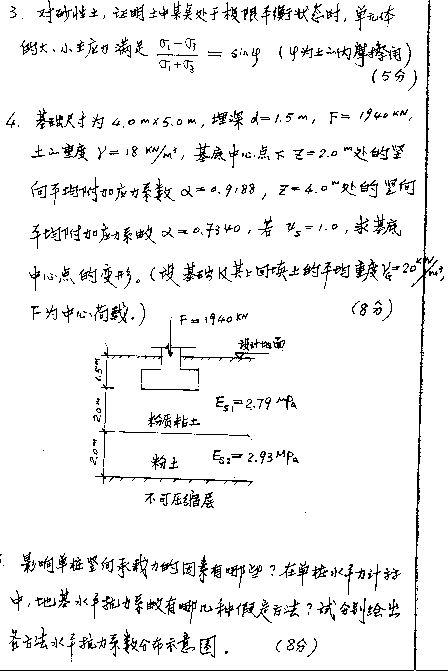 3. 对砂性土,证明土中某点处于极限平衡状态时,单元体
的大、小主应力满足 (σ₁-σ₃)/(σ₁+σ₃) = sinφ (φ为土的内摩擦角)
(5分)
4. 基础尺寸为4.0m×5.0m,埋深d=1.5m,F=1940KN,
土的重度γ=18KN/m³,基底中心点下Z=2.0m处的竖
向平均附加应力系数α=0.9188,Z=4.0m处的竖向
平均附加应力系数α=0.7340,若ψs=1.0,求基底
中心点的变形。(设基础及其上回填土的平均重度γG=20KN/m³,
F为中心荷载。) (8分)
F=1940KN
设计地面
1.5m
2.0m
Es1=2.79MPa
粉质粘土
2.0m
粉土
Es2=2.93MPa
不可压缩层
影响单桩竖向承载力的因素有哪些?在单桩水平力计算
中,地基水平抗力系数有哪几种假定方法?试分别绘出
各方法水平抗力系数分布示意图。 (8分)